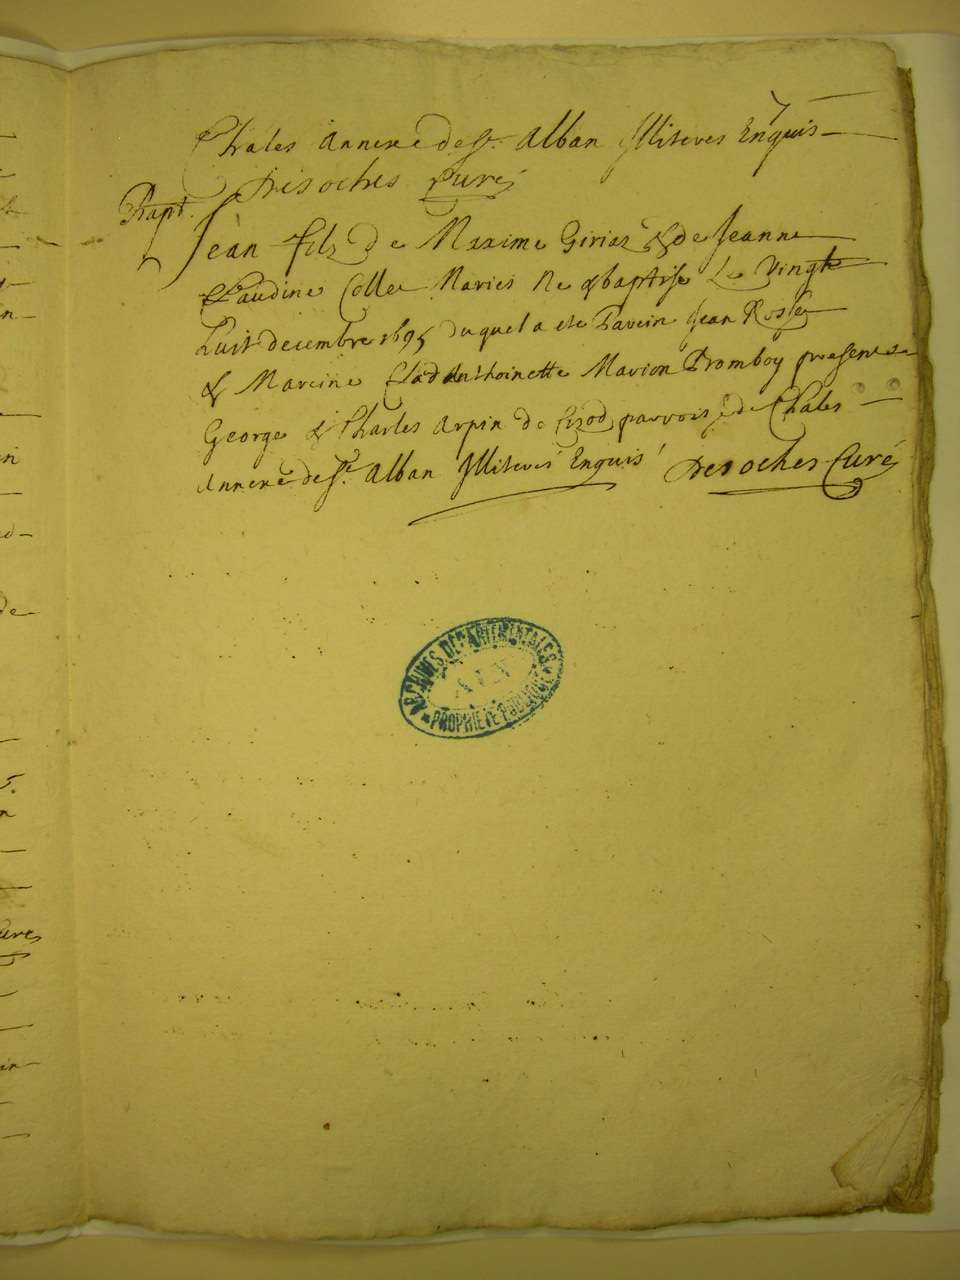 Chales Annexe de St. Alban Illiteres Enquis
Desoches Curé
Bapt.
Jean fils de Maxime Giriaz & de Jeanne
Claudine Collet Maries Ne & baptise Le Vingt
huit decembre 1695 duquel a ete Parein Jean Rosse
& Mareine Clad Anthoinette Marion Promboy presents
George & Charles Arpin de Cizod parroisse de Chales
Annexe de St. Alban Illiteres Enquis Desoches Curé
ARCHIVES DEPARTEMENTALES
AIN
PROPRIÉTÉ PUBLIQUE